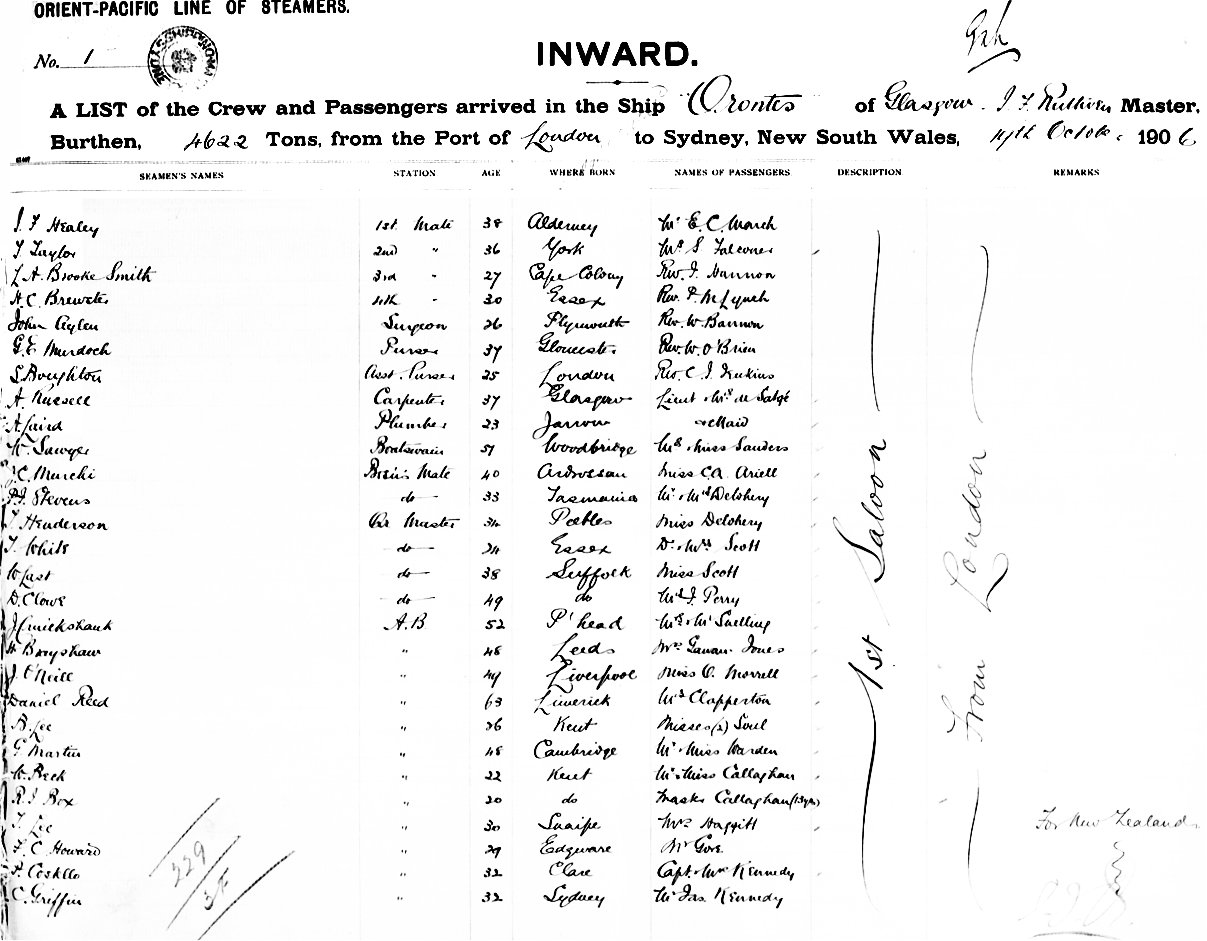 ORIENT-PACIFIC LINE OF STEAMERS.
No. 1
INWARD.
A LIST of the Crew and Passengers arrived in the Ship Orontes of Glasgow. J F Ruthven Master,
Burthen, 4622 Tons, from the Port of London to Sydney, New South Wales, 19th October 1906
SEAMEN'S NAMES STATION AGE WHERE BORN NAMES OF PASSENGERS DESCRIPTION REMARKS
Healey 1st Mate 38 Alderney Mr E. C. March
T Taylor 2nd " 36 York S. Falconer
A. Brooke Smith 3rd " 27 Cape Colony Rev. J. Hannon
H. C. Brewster 4th " 30 Essex Rev. P. McLynch
John Aylen Surgeon 26 Plymouth Rev. W. Bannon
G. E. Murdoch Purser 37 Gloucester Rev. W. O'Brien
S. Boughton Asst. Purser 25 London Rev. C. J. Jenkins
A. Russell Carpenter 37 Glasgow Lieut Mrs de Satgé
A. Laird Plumber 23 Jarrow Maid
W. Sawyer Boatswain 51 Woodbridge Miss Sanders
C. Murchi Bosn's Mate 40 Ardrossan Miss C. A. Ariell
Stevens do 33 Tasmania Mr Mrs Delohery
T Henderson Qr Master 34 Peebles Miss Delohery
T. White do 24 Essex Dr Mrs Scott
W Last do 38 Suffolk Miss Scott
D. Clowe do 49 do J. Perry
J Cruickshank A.B 52 P'head Mr Snelling
Brayshaw " 48 Leeds Jones
J. O'Neill " 49 Liverpool Miss O. Morrell
Daniel Reed " 63 Limerick Clapperton
B. Lee " 26 Kent Misses (2) Soul
G Martin " 48 Cambridge Mr Miss Warden
W. Beck " 22 Kent Mr Miss Callaghan
R. J Box " 20 do Master Callaghan (13yrs)
T. Lee " 30 Snaipe Mrs Haggitt For New Zealand
F. C Howard " 29 Edgware Mr Gore
Costello " 32 Clare Capt. Mrs Kennedy
C. Griffin " 32 Sydney Mr Jas. Kennedy
1st Saloon
From London
229